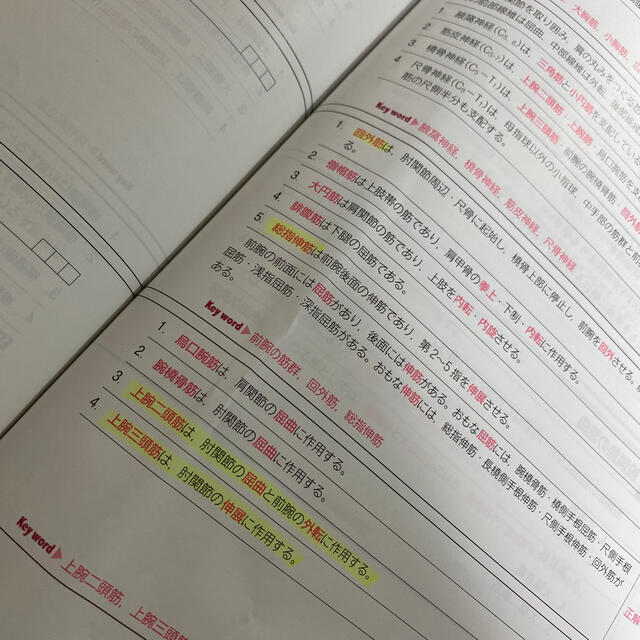 大胸筋，小胸筋，広
関節を取り囲み，肩の丸みをつく
前部線維は屈曲，中部線維は外転，後部
1. 腋窩神経(C₅,₆)は，三角筋と小円筋を支配してい
2. 筋皮神経(C₅₋₇)は，上腕二頭筋，上腕筋，烏口腕筋を
3. 橈骨神経(C₅−T₁)は，上腕三頭筋，前腕の腕橈骨筋，回外筋
4. 尺骨神経(C₈−T₁)は，母指球以外の小指球，中手部の筋群と
筋の尺側半分も支配する。
Key word▶腋窩神経，橈骨神経，筋皮神経，尺骨神経
1. 回外筋は，肘関節周辺・尺骨に起始し，橈骨上部に停止し，前腕を回外させ
る。
2. 僧帽筋は上肢帯の筋であり，肩甲骨の挙上・下制・内転に作用する。
3. 大円筋は肩関節の筋であり，上肢を内転・内旋させる。
4. 腓腹筋は下腿の屈筋である。
5. 総指伸筋は前腕後面の伸筋であり，第2〜5指を伸展させる。
前腕の前面には屈筋があり，後面には伸筋がある。おもな屈筋には，腕橈骨筋・橈側手根屈筋・尺側手根
屈筋・浅指屈筋・深指屈筋がある。おもな伸筋には，総指伸筋・長橈側手根伸筋・尺側手根伸筋・回外筋が
ある。
Key word▶前腕の筋群，回外筋，総指伸筋
1. 烏口腕筋は，肩関節の屈曲に作用する。
2. 腕橈骨筋は，肘関節の屈曲に作用する。
3. 上腕二頭筋は，肘関節の屈曲と前腕の外転に作用する。
4. 上腕三頭筋は，肘関節の伸展に作用する。
正解
Key word▶上腕二頭筋，上腕三頭筋